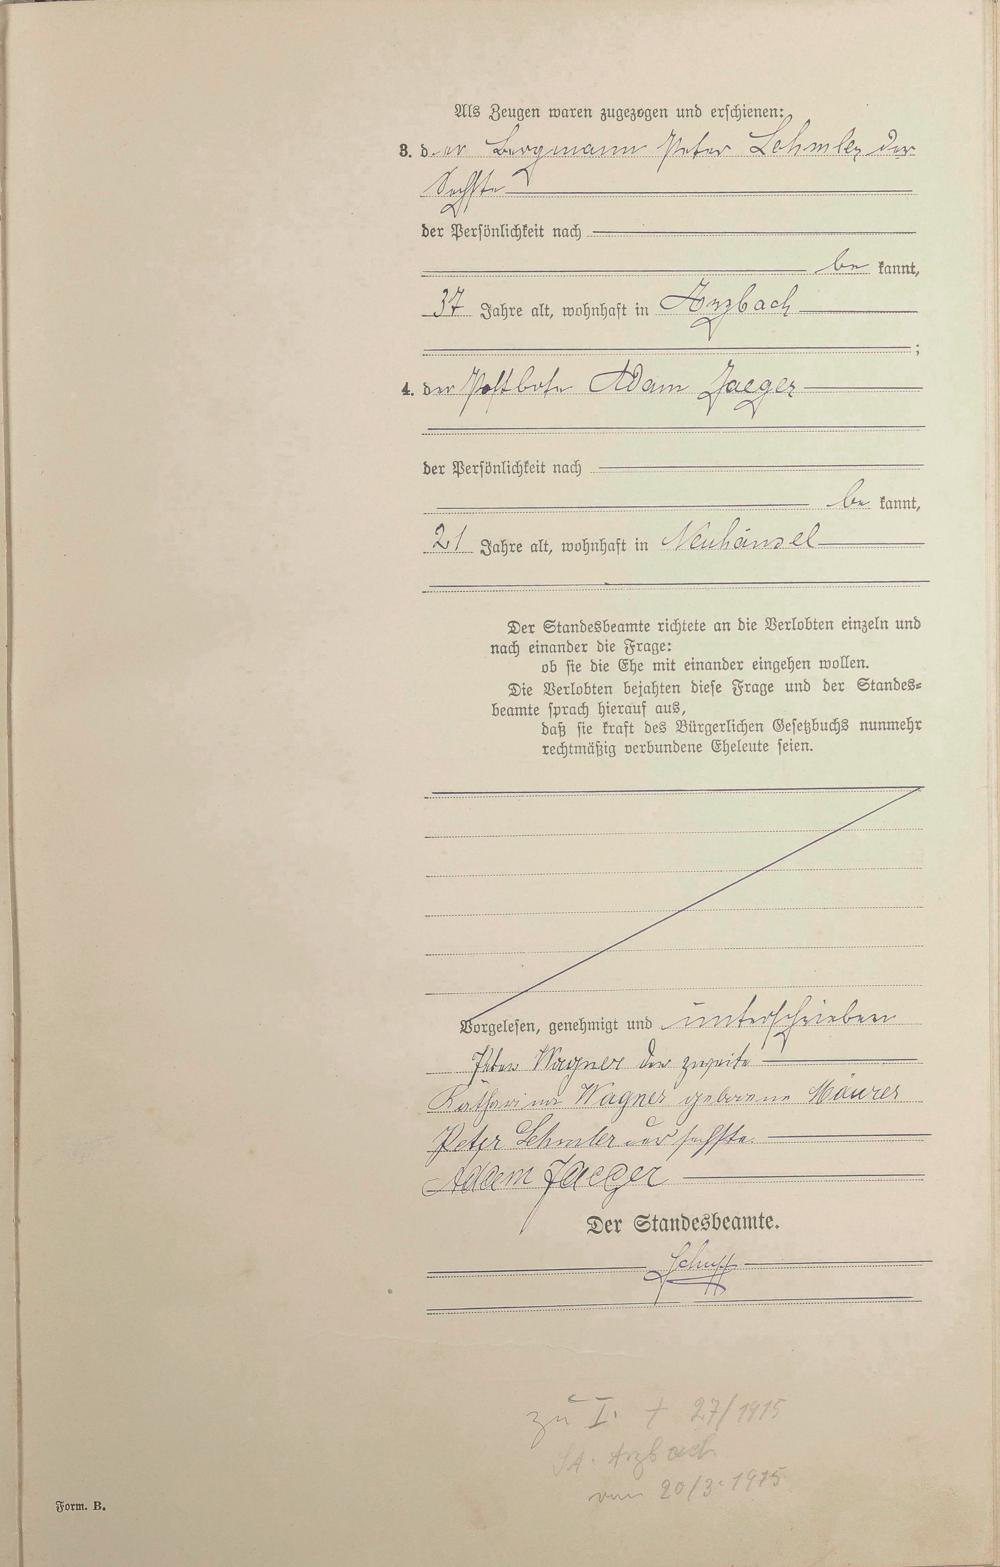 Als Zeugen waren zugezogen und erschienen:
3. der Bergmann Peter Lehmler der
Sechste
der Persönlichkeit nach
be kannt,
37 Jahre alt, wohnhaft in Arzbach
;
4. der Postbote Adam Jaeger
der Persönlichkeit nach
be kannt,
21 Jahre alt, wohnhaft in Neuhäusel
Der Standesbeamte richtete an die Verlobten einzeln und
nach einander die Frage:
ob sie die Ehe mit einander eingehen wollen.
Die Verlobten bejahten diese Frage und der Standes-
beamte sprach hierauf aus,
daß sie kraft des Bürgerlichen Gesetzbuchs nunmehr
rechtmäßig verbundene Eheleute seien.
Vorgelesen, genehmigt und unterschrieben
Peter Wagner der zweite
Katharina Wagner geborene Maurer
Peter Lehmler der sechste.
Adam Jaeger
Der Standesbeamte.
zu I. † 27/1915
StA. Arzbach
vom 20/3.1915
Form. B.